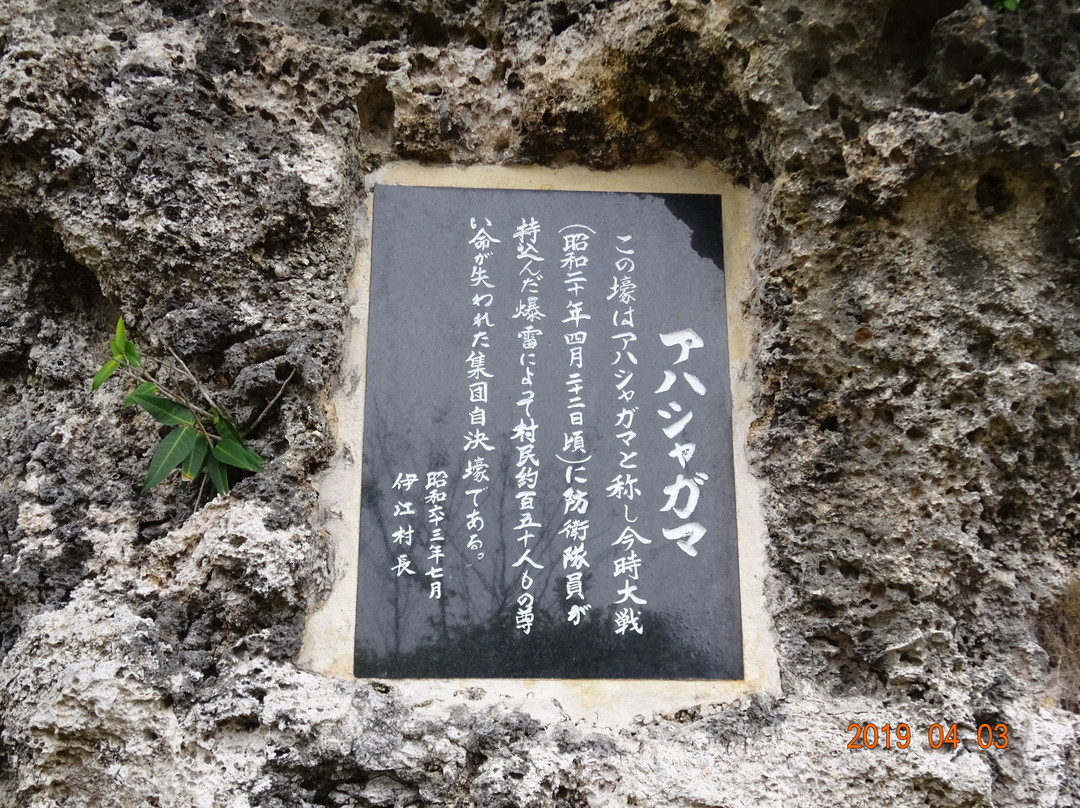 アハシャガマ
この壕はアハシャガマと称し今時大戦
(昭和二十年四月二十二日頃)に防衛隊員が
持込んだ爆雷によって村民約百五十人もの尊
い命が失われた集団自決壕である。
昭和六十三年七月
伊江村長
2019 04 03